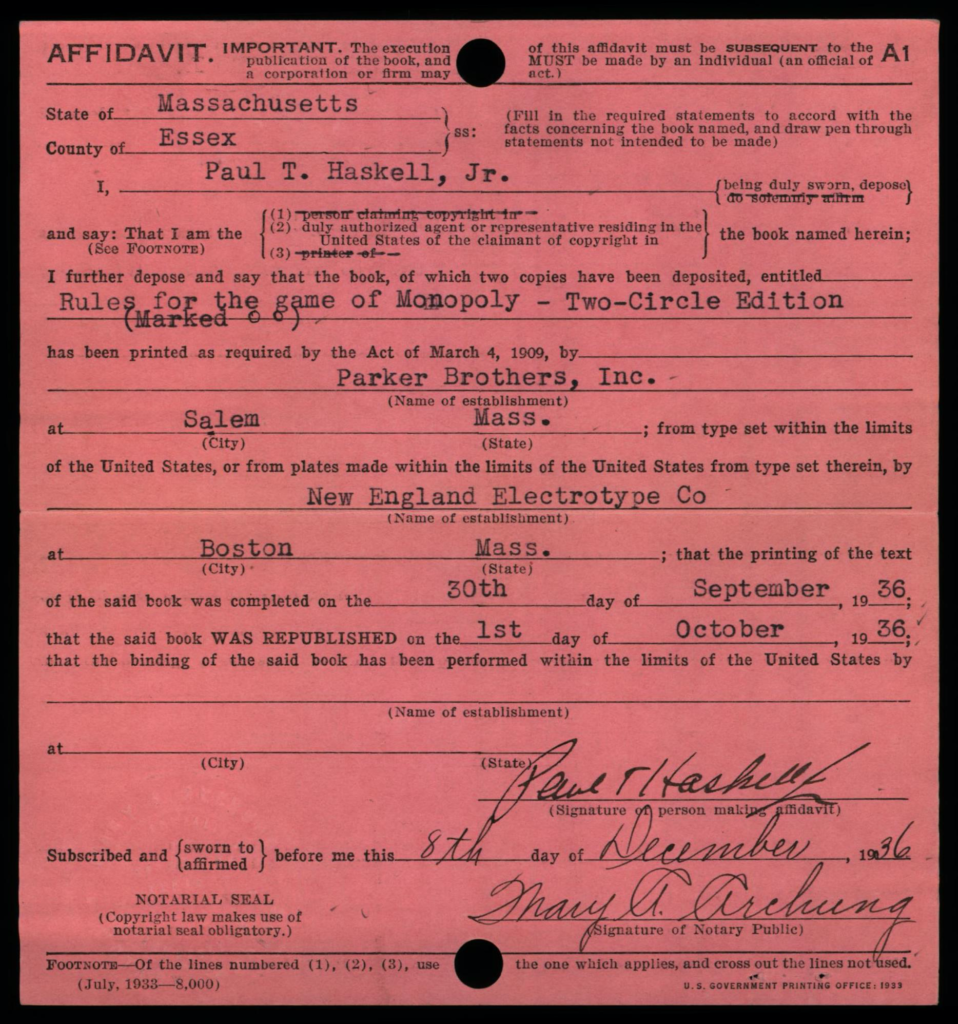 AFFIDAVIT. IMPORTANT. The execution of this affidavit must be SUBSEQUENT to the A1
publication of the book, and MUST be made by an individual (an official of
a corporation or firm may act.)
State of Massachusetts
County of Essex ss:
(Fill in the required statements to accord with the
facts concerning the book named, and draw pen through
statements not intended to be made)
I, Paul T. Haskell, Jr. being duly sworn, depose
do solemnly affirm
and say: That I am the
(See FOOTNOTE)
(1) person claiming copyright in
(2) duly authorized agent or representative residing in the
United States of the claimant of copyright in
(3) printer of
the book named herein;
I further depose and say that the book, of which two copies have been deposited, entitled
Rules for the game of Monopoly - Two-Circle Edition
(Marked o o)
has been printed as required by the Act of March 4, 1909, by
Parker Brothers, Inc.
(Name of establishment)
at Salem Mass. ; from type set within the limits
(City) (State)
of the United States, or from plates made within the limits of the United States from type set therein, by
New England Electrotype Co
(Name of establishment)
at Boston Mass. ; that the printing of the text
(City) (State)
of the said book was completed on the 30th day of September, 1936;
that the said book WAS REPUBLISHED on the 1st day of October, 1936;
that the binding of the said book has been performed within the limits of the United States by
(Name of establishment)
at
(City) (State)
Paul T Haskell Jr
(Signature of person making affidavit)
Subscribed and {sworn to affirmed} before me this 8th day of December, 1936
NOTARIAL SEAL
(Copyright law makes use of
notarial seal obligatory.)
Mary A.
(Signature of Notary Public)
FOOTNOTE—Of the lines numbered (1), (2), (3), use the one which applies, and cross out the lines not used.
(July, 1933—8,000) U. S. GOVERNMENT PRINTING OFFICE: 1933